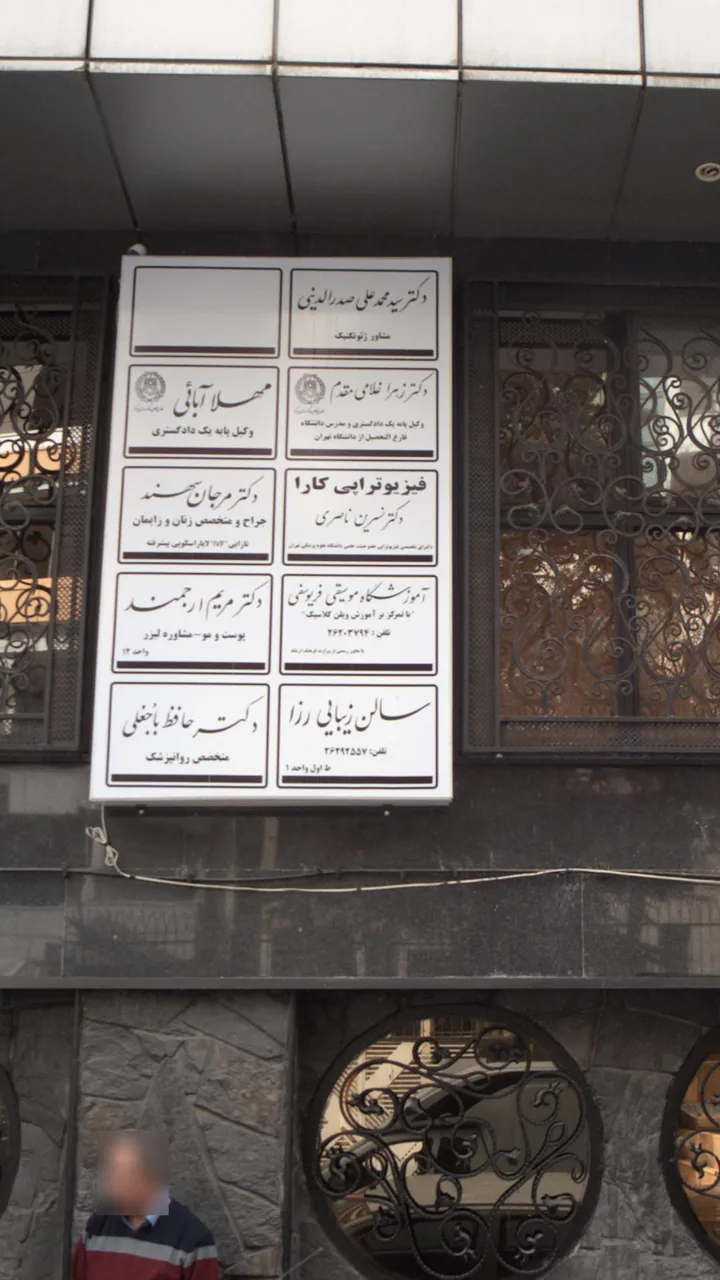 دکتر سید محمد علی صدرالدینی
مشاور ژئوتکنیک
دکتر زهرا غلامی مقدم
وکیل پایه یک دادگستری و مدرس دانشگاه
فارغ التحصیل از دانشگاه تهران
مهلا آبائی
وکیل پایه یک دادگستری
فیزیوتراپی کارا
دکتر نسرین ناصری
دکترای تخصصی فیزیوتراپی عضو هیئت علمی دانشگاه علوم پزشکی تهران
دکتر مرجان سهند
جراح و متخصص زنان و زایمان
نازایی "IVF" لاپاراسکوپی پیشرفته
آموزشگاه موسیقی فریوسفی
"با تمرکز بر آموزش ویلن کلاسیک"
تلفن : ۲۶۲۰۳۷۹۴
با مجوز رسمی از وزارت فرهنگ و ارشاد
دکتر مریم ارجمند
پوست و مو - مشاوره لیزر
واحد ۱۲
سالن زیبایی رزا
تلفن: ۲۶۲۹۲۵۵۷
ط اول واحد ۱
دکتر حافظ باجغلی
متخصص روانپزشک